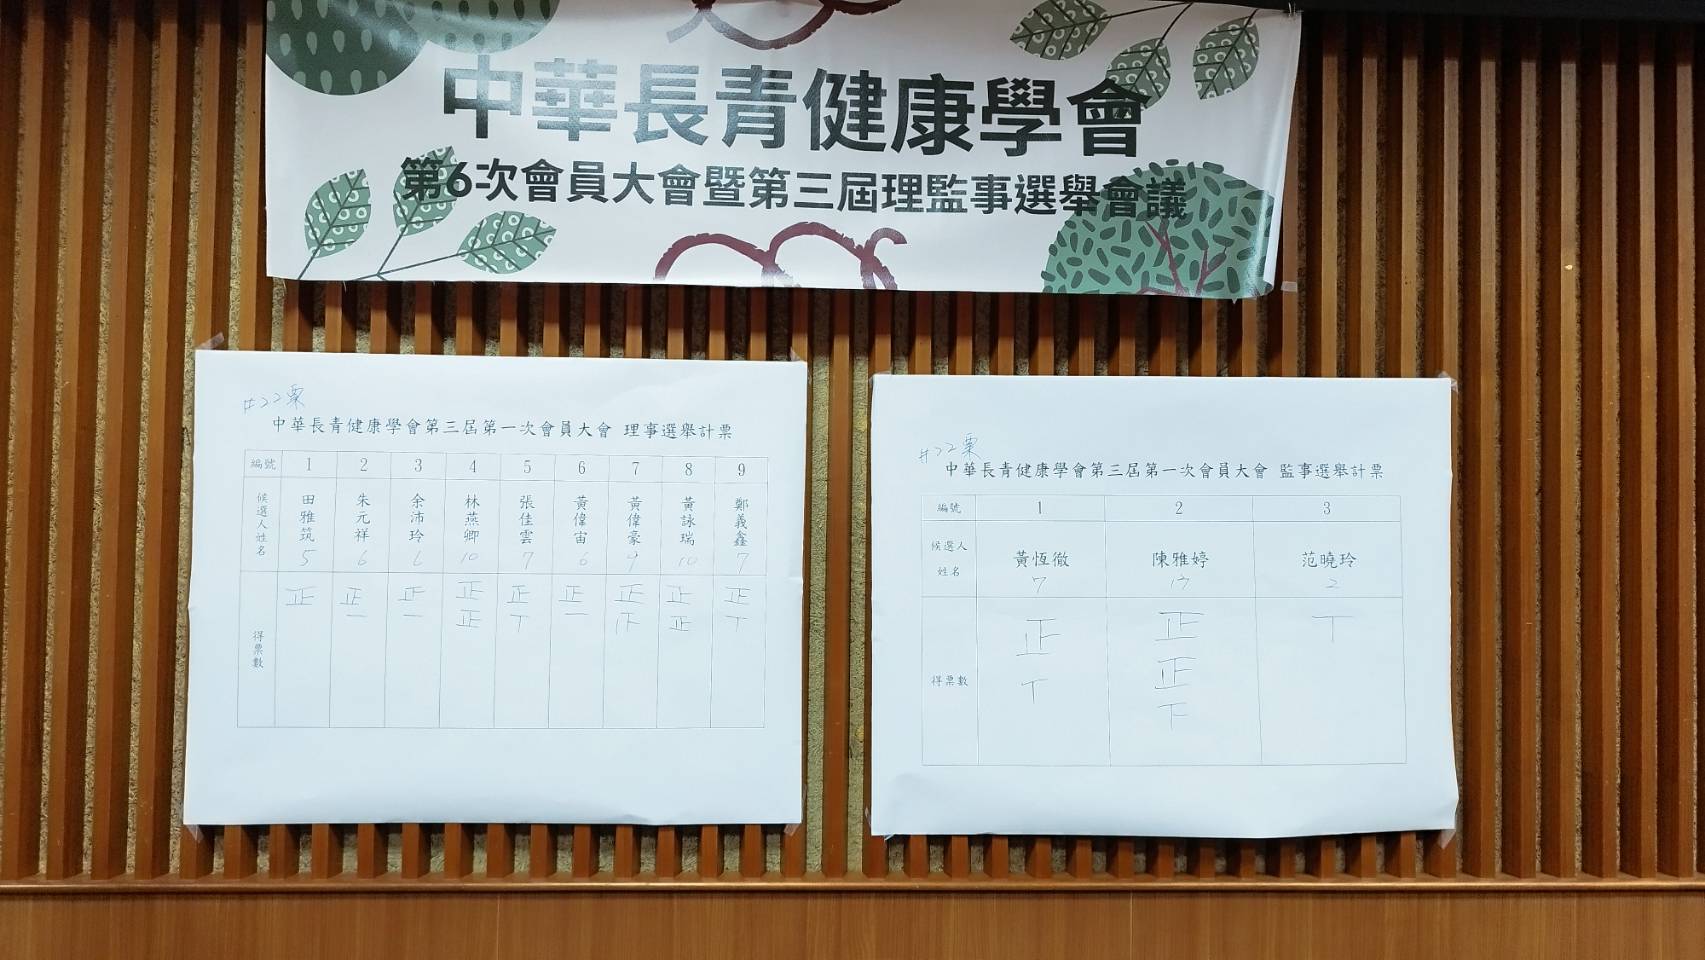 中華長青健康學會
第6次會員大會暨第三屆理監事選舉會議
共22票
中華長青健康學會第三屆第一次會員大會 理事選舉計票
編號 1 2 3 4 5 6 7 8 9
候選人姓名 田雅筑 朱元祥 余沛玲 林燕卿 張佳雲 黃偉宙 黃偉豪 黃詠瑞 鄭義鑫
5 6 6 10 7 6 9 10 7
得票數 正 正 正 正 正 正 正 正 正
一 一 正 丅 一 正 丅
共22票
中華長青健康學會第三屆第一次會員大會 監事選舉計票
編號 1 2 3
候選人姓名 黃恆徹 陳雅婷 范曉玲
7 2
得票數 正 正 丅
丅 正
下